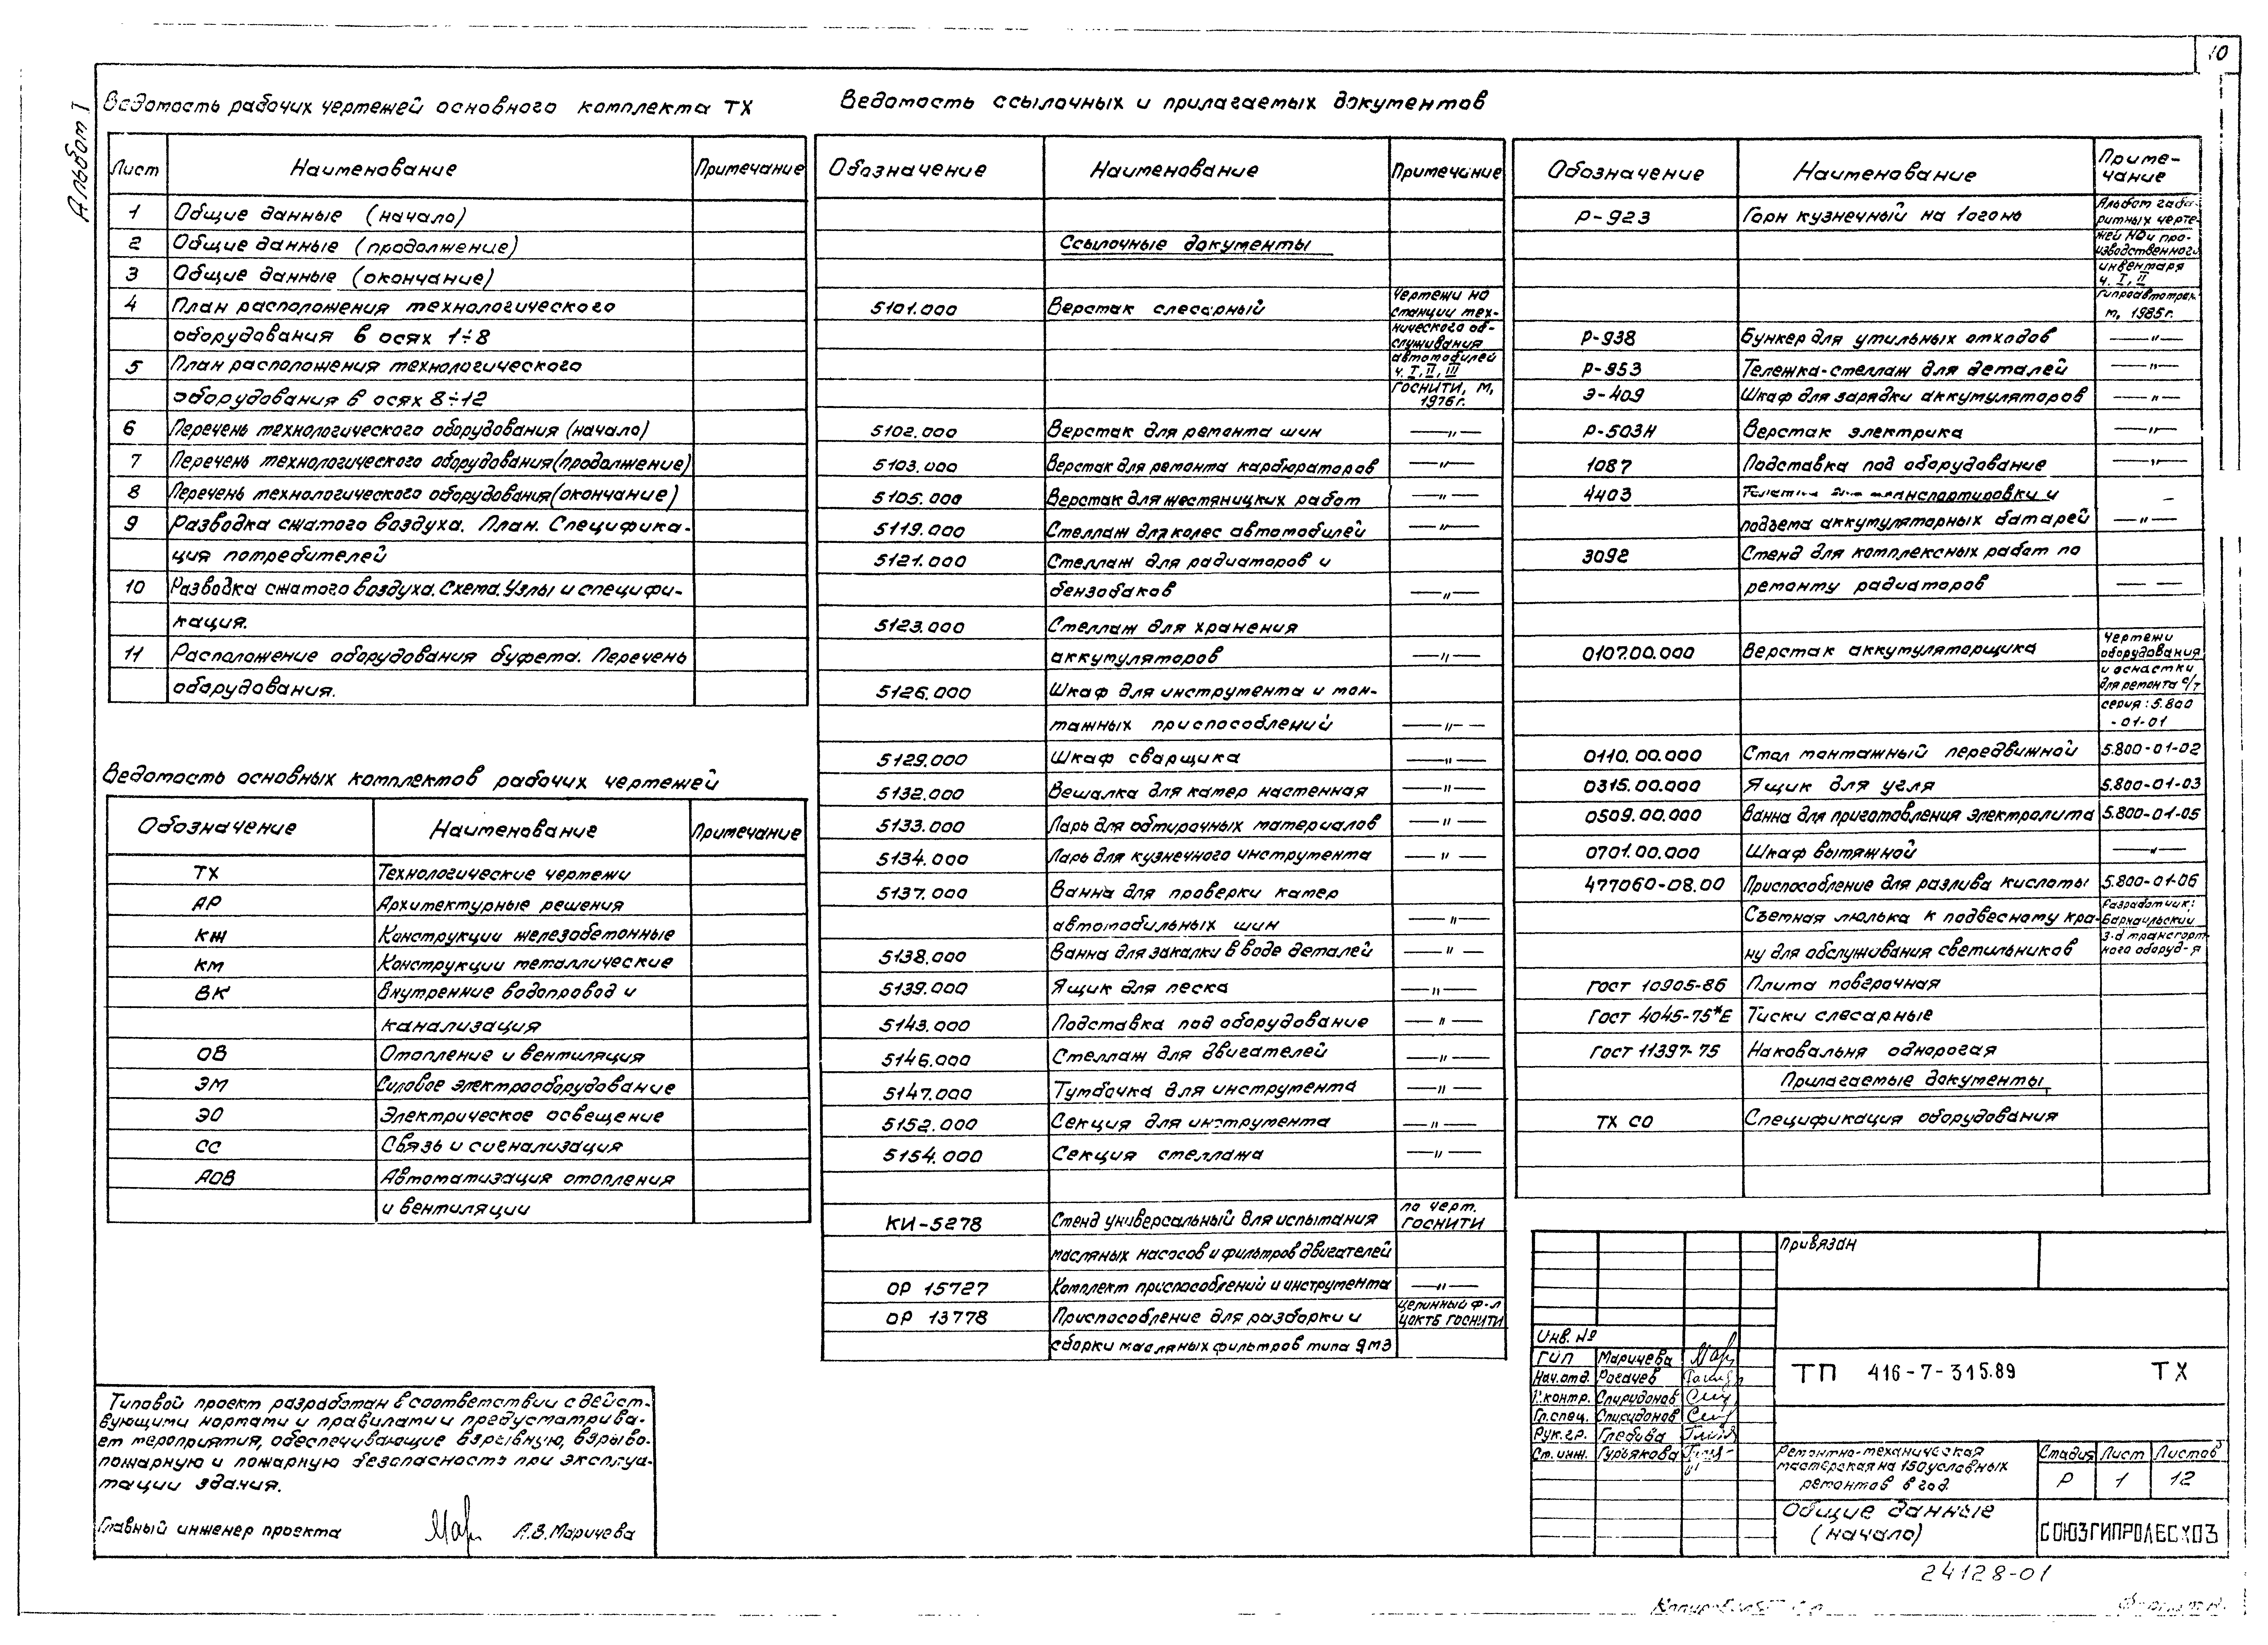 10
Альбом 1
Ведомость рабочих чертежей основного комплекта ТХ
Лист Наименование Примечание
1 Общие данные (начало)
2 Общие данные (продолжение)
3 Общие данные (окончание)
4 План расположения технологического
оборудования в осях 1÷8
5 План расположения технологического
оборудования в осях 8÷12
6 Перечень технологического оборудования (начало)
7 Перечень технологического оборудования (продолжение)
8 Перечень технологического оборудования (окончание)
9 Разводка сжатого воздуха. План. Специфика-
ция потребителей
10 Разводка сжатого воздуха. Схема. Узлы и специфи-
кация.
11 Расположение оборудования буфета. Перечень
оборудования.
Ведомость основных комплектов рабочих чертежей
Обозначение Наименование Примечание
ТХ Технологические чертежи
АР Архитектурные решения
КЖ Конструкции железобетонные
КМ Конструкции металлические
ВК Внутренние водопровод и
канализация
ОВ Отопление и вентиляция
ЭМ Силовое электрооборудование
ЭО Электрическое освещение
СС Связь и сигнализация
АОВ Автоматизация отопления
и вентиляции
Типовой проект разработан в соответствии с дейст-
вующими нормами и правилами и предусматрива-
ет мероприятия, обеспечивающие взрывную, взрыво-
пожарную и пожарную безопасность при эксплуа-
тации здания.
Главный инженер проекта А.В. Маричева
Ведомость ссылочных и прилагаемых документов
Обозначение Наименование Примечание
Ссылочные документы
5101.000 Верстак слесарный
Чертежи на
станции тех-
нического об-
служивания
автомобилей
ч. I, II, III
ГОСНИТИ, М,
1976г.
5102.000 Верстак для ремонта шин —"—
5103.000 Верстак для ремонта карбюраторов —"—
5105.000 Верстак для жестяницких работ —"—
5119.000 Стеллаж для колес автомобилей —"—
5121.000 Стеллаж для радиаторов и
бензобаков —"—
5123.000 Стеллаж для хранения
аккумуляторов —"—
5126.000 Шкаф для инструмента и мон-
тажных приспособлений —"—
5129.000 Шкаф сварщика —"—
5132.000 Вешалка для камер настенная —"—
5133.000 Ларь для обтирочных материалов —"—
5134.000 Ларь для кузнечного инструмента —"—
5137.000 Ванна для проверки камер
автомобильных шин —"—
5138.000 Ванна для закалки в воде деталей —"—
5139.000 Ящик для песка —"—
5143.000 Подставка под оборудование —"—
5146.000 Стеллаж для двигателей —"—
5147.000 Тумбочка для инструмента —"—
5152.000 Секция для инструмента —"—
5154.000 Секция стеллажа —"—
КИ-5278 Стенд универсальный для испытания
масляных насосов и фильтров двигателей
по черт.
ГОСНИТИ
ОР 15727 Комплект приспособлений и инструмента —"—
ОР 13778 Приспособление для разборки и
сборки масляных фильтров типа
Целинный ф-л
ЦОКТБ ГОСНИТИ
Обозначение Наименование Приме-
чание
Р-923 Горн кузнечный на 1 огонь
Альбом габа-
ритных черте-
жей НО и про-
изводственного
инвентаря
ч. I, II
Гипроавтотранс
м, 1985г.
Р-938 Бункер для утильных отходов —"—
Р-953 Тележка-стеллаж для деталей —"—
Э-409 Шкаф для зарядки аккумуляторов —"—
Р-503Н Верстак электрика —"—
1087 Подставка под оборудование —"—
4403 Тележка для транспортировки и
подъема аккумуляторных батарей —"—
3092 Стенд для комплексных работ по
ремонту радиаторов — —
0107.00.000 Верстак аккумуляторщика
Чертежи
оборудования
и оснастки
для ремонта с/т
серия: 5.800
-01-01
0110.00.000 Стол монтажный передвижной 5.800-01-02
0315.00.000 Ящик для угля 5.800-01-03
0509.00.000 Ванна для приготовления электролита 5.800-01-05
0701.00.000 Шкаф вытяжной —"—
477060-08.00 Приспособление для разлива кислоты 5.800-01-06
Съемная люлька к подвесному кра-
ну для обслуживания светильников
Разработчик:
Барнаульский
з-д транспорт-
ного оборуд-я
ГОСТ 10905-86 Плита поверочная
ГОСТ 4045-75*Е Тиски слесарные
ГОСТ 11397-75 Наковальня однорогая
Прилагаемые документы
ТХ СО Спецификация оборудования
Привязан
Инв. №
ГИП Маричева
Нач.отд. Рогачев
Н.контр. Спиридонов
Гл.спец. Спиридонов
Рук.гр. Глебова
Ст.инж. Гурьякова
ТП 416-7-315.89 ТХ
Ремонтно-механическая
мастерская на 150 условных
ремонтов в год.
Стадия Лист Листов
Р 1 12
Общие данные
(начало)
СОЮЗГИПРОЛЕСХОЗ
24128-01